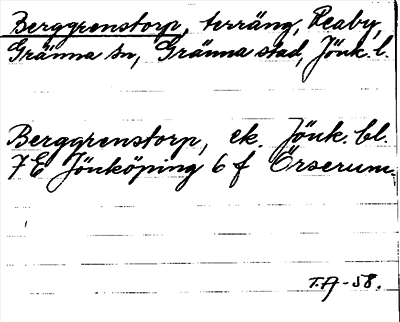 Berggrenstorp, terräng, Reaby,
Gränna sn, Gränna stad, Jönk. l.
Berggrenstorp, ek. Jönk. bl.
7E Jönköping 6 f Örserum.
T.A-58.